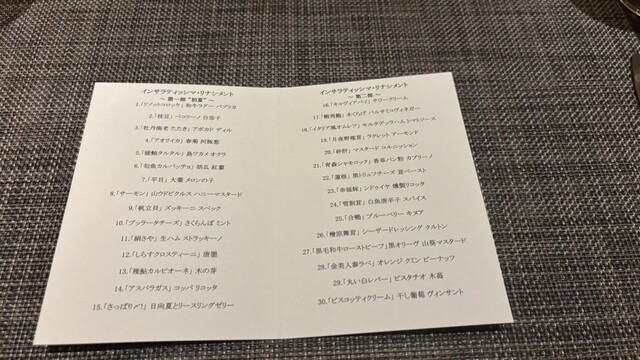 インサラティッシマ・リナシメント
～ 第一部 “初夏” ～
1.「リゾットコロッケ」 和牛ラグー パプリカ
2.「枝豆」 ペコリーノ 白茄子
3.「牡丹海老 たたき」 アボカド ディル
4.「アオリイカ」 春菊 阿転惣
5.「縞鯵タルタル」 島ワカメ オクラ
6.「旬魚カルパッチョ」 胡瓜 紅蓼
7.「平目」 大葉 メロンの子
8.「サーモン」 山ウドピクルス ハニーマスタード
9.「帆立貝」 ズッキーニ スペック
10.「ブッラータチーズ」 さくらんぼ ミント
11.「絹さや」 生ハム ストラッキーノ
12.「しらすクロスティーニ」 唐墨
13.「稚鮎カルピオーネ」 木の芽
14.「アスパラガス」 コッパ リコッタ
15.「さっぱり〆!」 日向夏とリースリングゼリー
インサラティッシマ・リナシメント
～ 第二部 ～
16.「キャヴィアパイ」 サワークリーム
17.「蝦夷鮑」 木くらげ バルサミコヴィネガー
18.「イタリア風オムレツ」 モルタデッラ・ハム トマトソース
19.「月夜野椎茸」 ラクレット アーモンド
20.「砂肝」 マスタード コルニッション
21.「青森シャモロック」 香草パン粉 カプリーノ
22.「蓮根」 黒トリュフチーズ 茸ペースト
23.「幸福豚」 シドゥイヤ 燻製リコッタ
24.「雪割茸」 白魚唐辛子 スパイス
25.「合鴨」 ブルーベリー キヌア
26.「檜原舞茸」 シーザードレッシング クルトン
27.「黒毛和牛ローストビーフ」 黒オリーヴ 山葵マスタード
28.「金美人参ラペ」 オレンジ クミン ピーナッツ
29.「丸い白レバー」 ピスタチオ 木苺
30.「ビスコッティクリーム」 干し葡萄 ヴィンサント